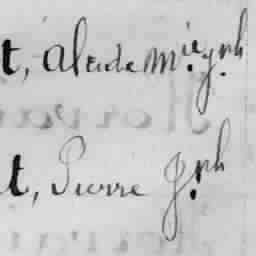 t, Alcide M.ie J.ph
t, Pierre J.ph